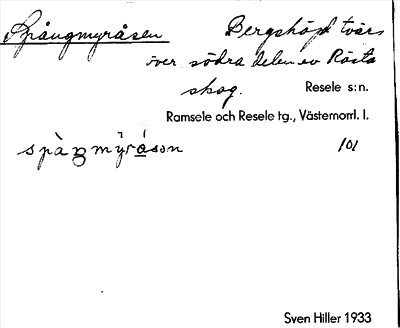 Spångmyråsen
Bergshöjd tvärs
över södra delen av Rösta
skog.
Resele s:n.
Ramsele och Resele tg., Västernorrl. l.
101
Sven Hiller 1933